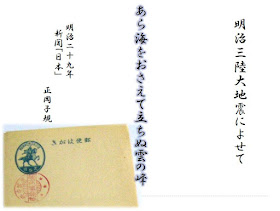 明治三陸大地震によせて
あら海をおさえて立ちぬ雲の峰
明治二十九年
新聞「日本」
正岡子規
郵便はがき